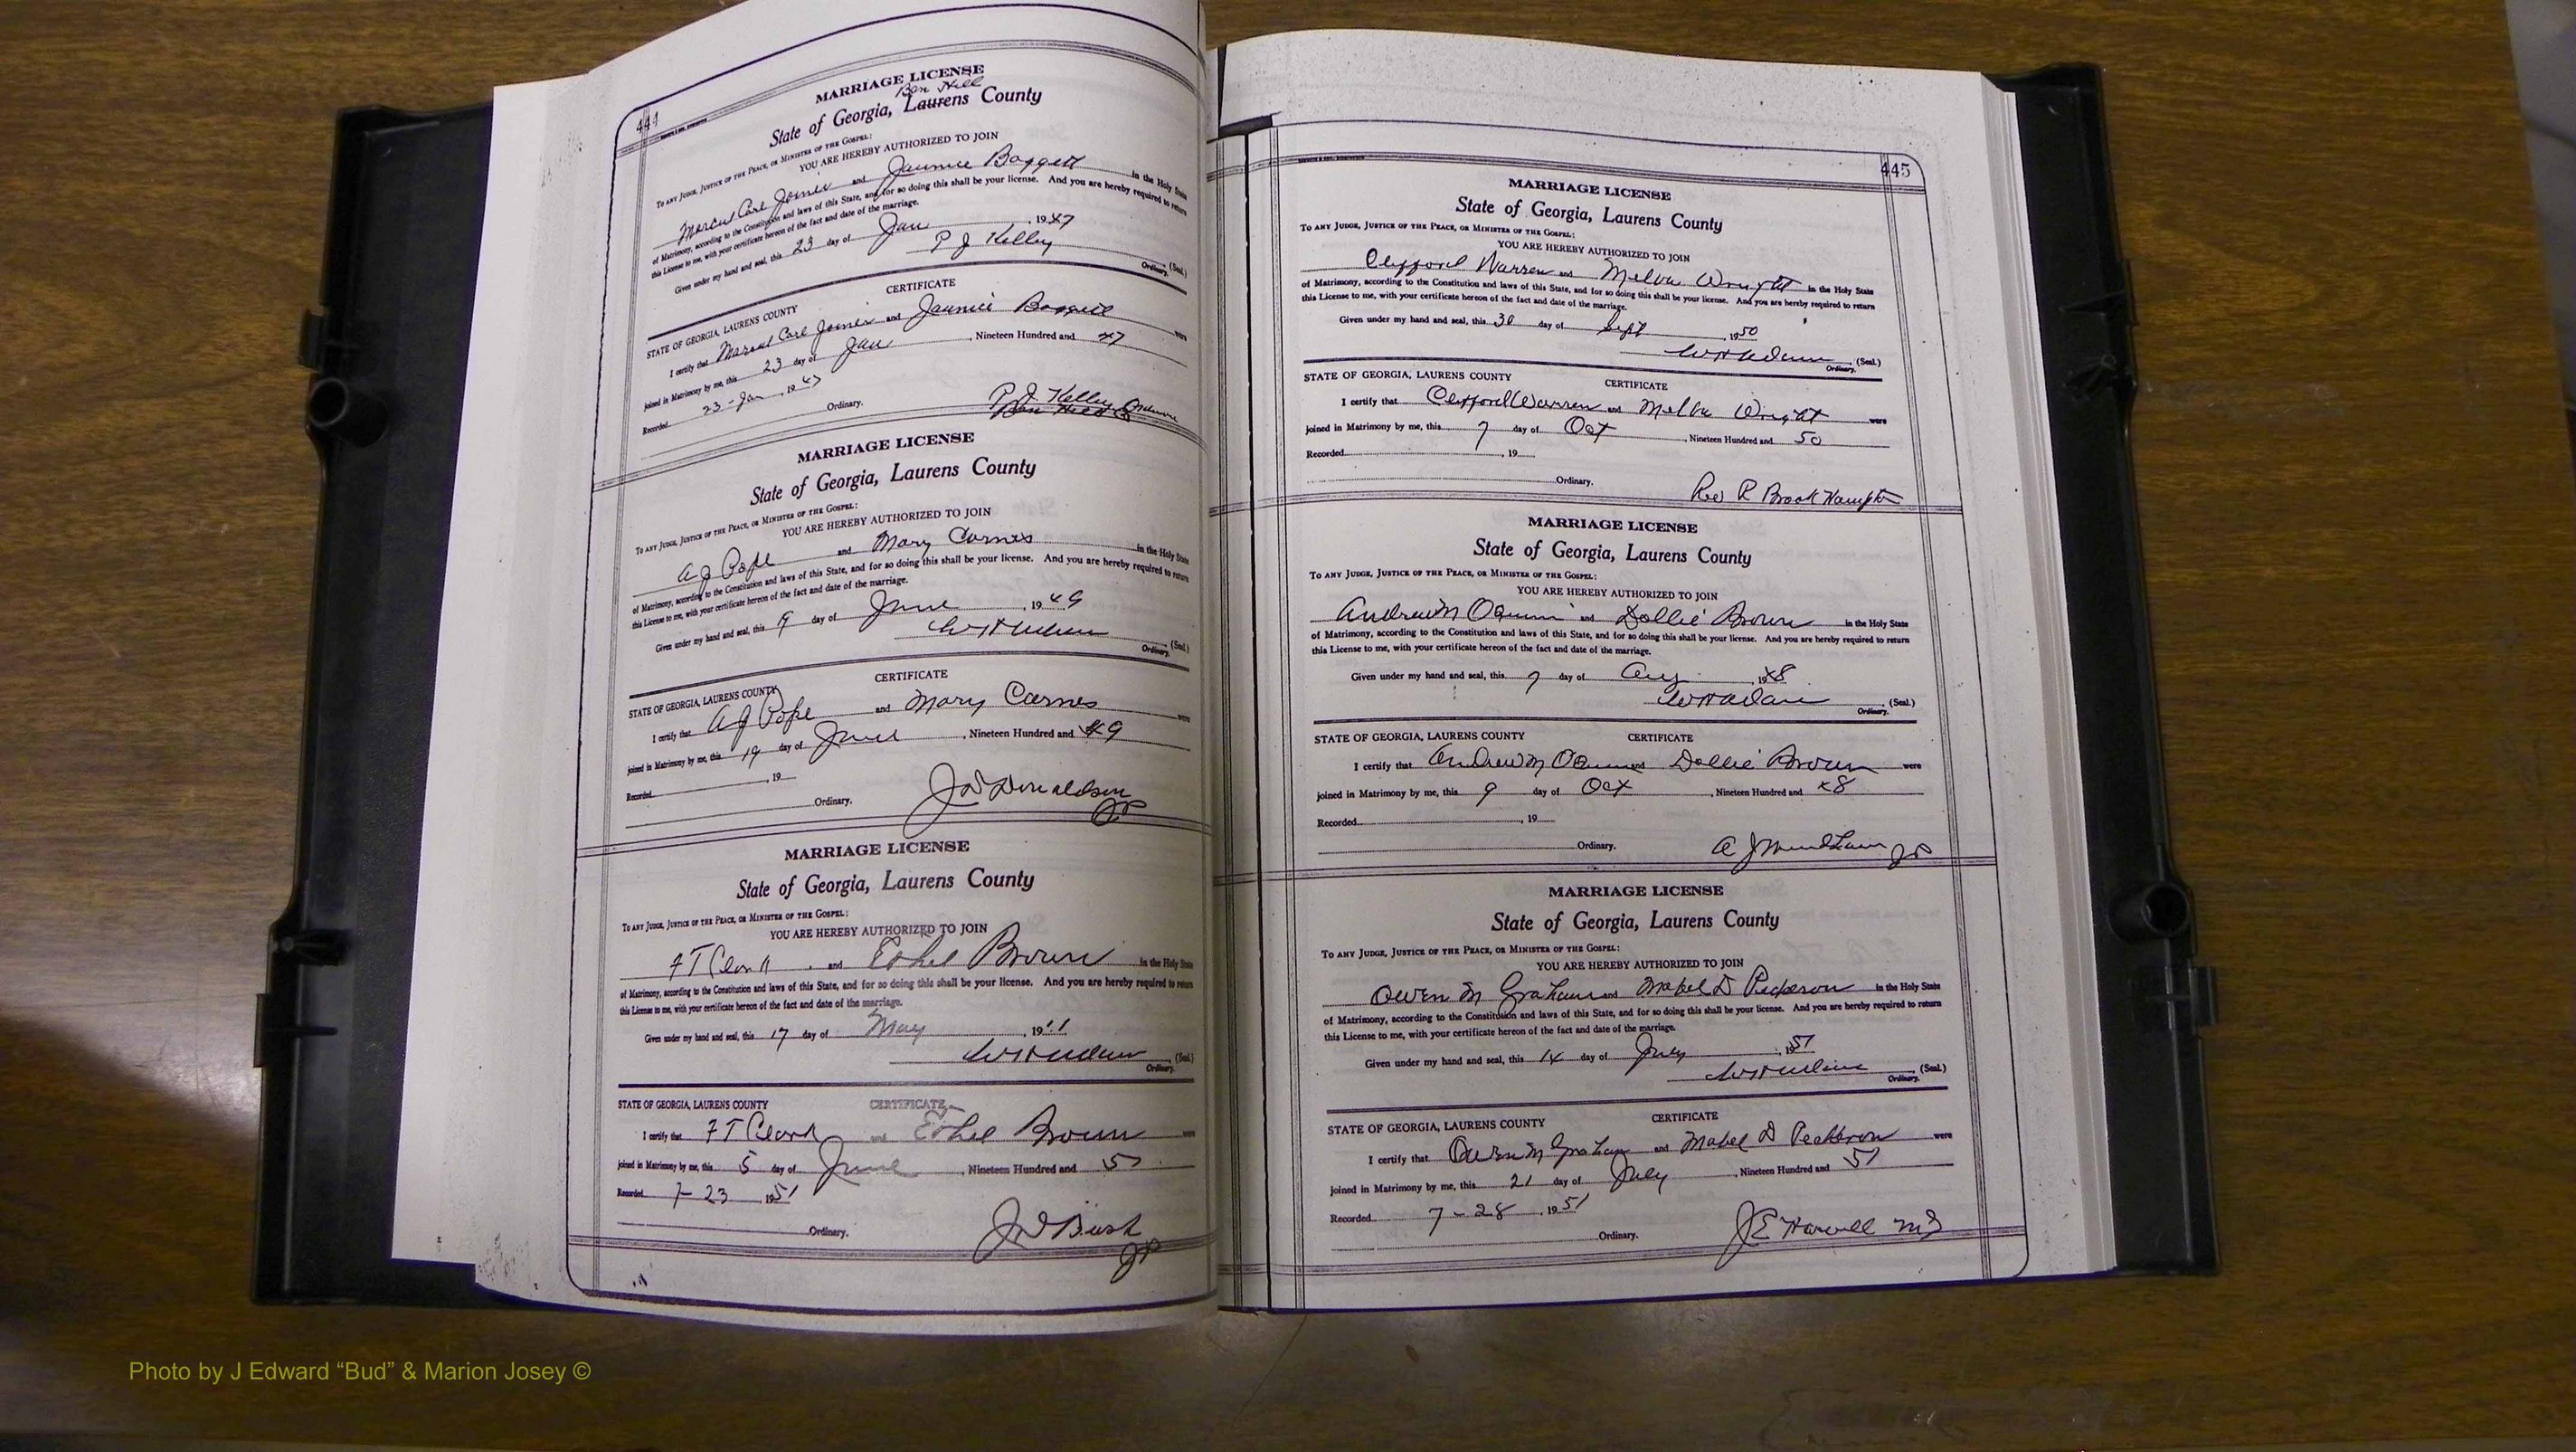 444
MARRIAGE LICENSE
Ben Hill
State of Georgia, Laurens County
To any Judge, Justice of the Peace, or Minister of the Gospel:
YOU ARE HEREBY AUTHORIZED TO JOIN
Marcus Carl Joiner and Jaunice Baggett in the Holy State
of Matrimony, according to the Constitution and laws of this State, and for so doing this shall be your license. And you are hereby required to return
this License to me, with your certificate hereon of the fact and date of the marriage.
Given under my hand and seal, this 23 day of Jan, 1947
P J Kelley (Seal.)
Ordinary.
CERTIFICATE
STATE OF GEORGIA, LAURENS COUNTY
I certify that Marcus Carl Joiner and Jaunice Baggett were
joined in Matrimony by me, this 23 day of Jan, Nineteen Hundred and 47
Recorded 23-Jan, 1947
Ordinary.
P. J. Kelley Ordinary
Ben Hill Co
MARRIAGE LICENSE
State of Georgia, Laurens County
To any Judge, Justice of the Peace, or Minister of the Gospel:
YOU ARE HEREBY AUTHORIZED TO JOIN
A J Pope and Mary Carnes in the Holy State
of Matrimony, according to the Constitution and laws of this State, and for so doing this shall be your license. And you are hereby required to return
this License to me, with your certificate hereon of the fact and date of the marriage.
Given under my hand and seal, this 19 day of June, 1949
(Seal.)
Ordinary.
CERTIFICATE
STATE OF GEORGIA, LAURENS COUNTY
I certify that A J Pope and Mary Carnes were
joined in Matrimony by me, this 19 day of June, Nineteen Hundred and 49
Recorded, 19
Ordinary.
Donaldson
JP
MARRIAGE LICENSE
State of Georgia, Laurens County
To any Judge, Justice of the Peace, or Minister of the Gospel:
YOU ARE HEREBY AUTHORIZED TO JOIN
F T Clark and Ethel Brown in the Holy State
of Matrimony, according to the Constitution and laws of this State, and for so doing this shall be your license. And you are hereby required to return
this License to me, with your certificate hereon of the fact and date of the marriage.
Given under my hand and seal, this 17 day of May, 19
(Seal.)
Ordinary.
CERTIFICATE
STATE OF GEORGIA, LAURENS COUNTY
I certify that F T Clark and Ethel Brown were
joined in Matrimony by me, this 5 day of June, Nineteen Hundred and 51
Recorded 7-23 1951
Ordinary.
Bush
JP
445
MARRIAGE LICENSE
State of Georgia, Laurens County
To any Judge, Justice of the Peace, or Minister of the Gospel:
YOU ARE HEREBY AUTHORIZED TO JOIN
Clifford Warren and Melva Wright in the Holy State
of Matrimony, according to the Constitution and laws of this State, and for so doing this shall be your license. And you are hereby required to return
this License to me, with your certificate hereon of the fact and date of the marriage.
Given under my hand and seal, this 30 day of Sept, 1950
(Seal.)
Ordinary.
STATE OF GEORGIA, LAURENS COUNTY CERTIFICATE
I certify that Clifford Warren and Melva Wright were
joined in Matrimony by me, this 7 day of Oct, Nineteen Hundred and 50
Recorded, 19
Ordinary.
Rev R Brook Hampton
MARRIAGE LICENSE
State of Georgia, Laurens County
To any Judge, Justice of the Peace, or Minister of the Gospel:
YOU ARE HEREBY AUTHORIZED TO JOIN
Andrew M and Dollie Brown in the Holy State
of Matrimony, according to the Constitution and laws of this State, and for so doing this shall be your license. And you are hereby required to return
this License to me, with your certificate hereon of the fact and date of the marriage.
Given under my hand and seal, this 9 day of Aug, 1948
(Seal.)
Ordinary.
STATE OF GEORGIA, LAURENS COUNTY CERTIFICATE
I certify that Andrew M and Dollie Brown were
joined in Matrimony by me, this 9 day of Oct, Nineteen Hundred and 48
Recorded, 19
Ordinary.
A J JP
MARRIAGE LICENSE
State of Georgia, Laurens County
To any Judge, Justice of the Peace, or Minister of the Gospel:
YOU ARE HEREBY AUTHORIZED TO JOIN
Owen M Graham and Mabel D in the Holy State
of Matrimony, according to the Constitution and laws of this State, and for so doing this shall be your license. And you are hereby required to return
this License to me, with your certificate hereon of the fact and date of the marriage.
Given under my hand and seal, this 14 day of July, 1951
(Seal.)
Ordinary.
STATE OF GEORGIA, LAURENS COUNTY CERTIFICATE
I certify that Owen M Graham and Mabel D were
joined in Matrimony by me, this 21 day of July, Nineteen Hundred and 51
Recorded 7-28, 1951
Ordinary.
J E Harvell
Photo by J Edward “Bud” & Marion Josey ©